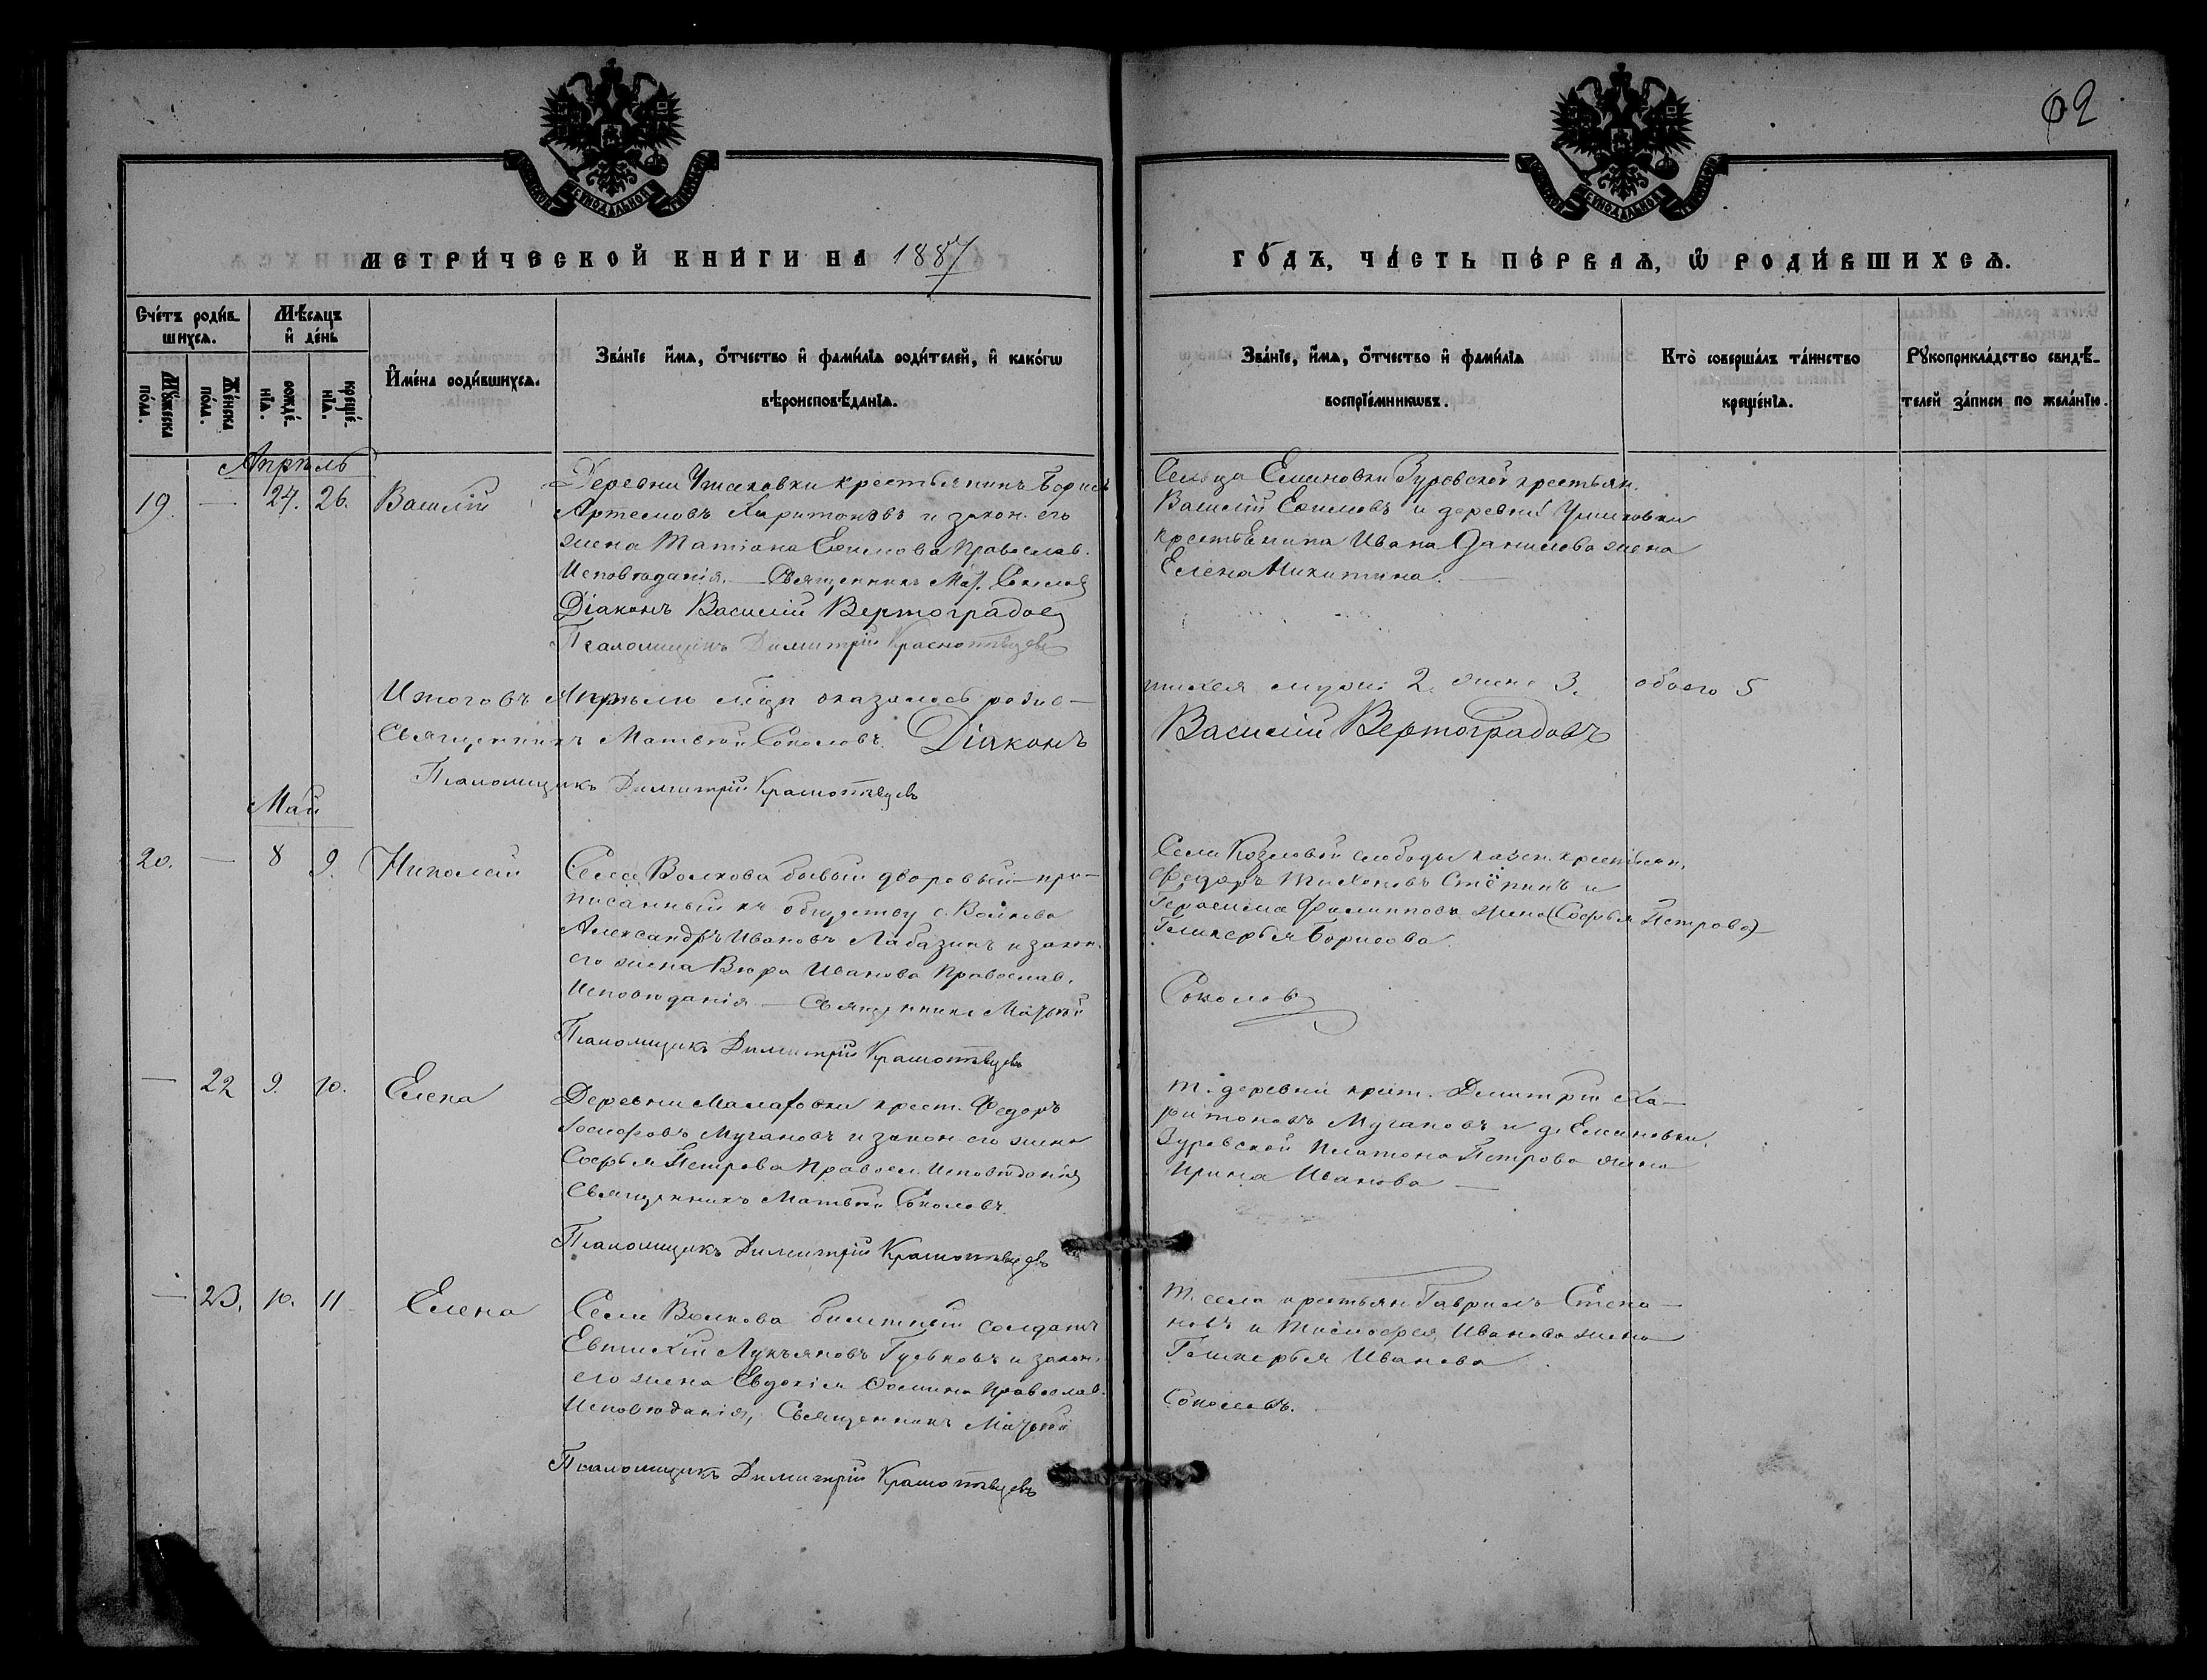 62
МЕТРИ́ЧЕСКОЙ КНИ́ГИ НА 1887
ГО́ДЪ, ЧА́СТЬ ПЕ́РВАѦ, Ѡ РОДИ́ВШИХСѦ.
Сче́тъ роди́в-
шихсѧ.
Мѣ́сѧцъ
и҆ де́нь
Мꙋ́жеска по́ла.
Же́нска по́ла.
рожде́-
нїѧ.
креще́-
нїѧ.
И҆мена̀ роди́вшихсѧ.
Зва́нїе и҆́мѧ, ѻ҆́тчество и҆ фами́лїѧ роди́телей, и҆ како́гѡ
вѣроисповѣ́данїѧ.
Зва́нїе, и҆́мѧ, ѻ҆́тчество и҆ фами́лїѧ
воспрїе́мникѡвъ.
Кто̀ соверша́лъ та́инство
креще́нїѧ.
Рꙋкоприкла́дство свидѣ́-
телей за́писи по жела́нїю.
Апрѣль
19. — 24. 26. Василій
Деревни Ушаковки крестьянинъ Борисъ
Артемовъ Харитоновъ и закон. его
жена Татіана Ефимова Православ.
Исповѣданія. — Священникъ Мат.
Діаконъ Василій Вертоградовъ
Псаломщикъ Димитрій
Сельца Елиновки Зуровской крестьян.
Василій Ефимовъ и деревни Ушаковки
крестьянина Ивана Данилова жена
Елена Никитина. —
Итого въ Апрѣлѣ оказалось родив-
шихся муж. 2. жен. 3. обоего 5
Священникъ Матвѣй Соколовъ. Діаконъ
Василій Вертоградовъ
Псаломщикъ Димитрій
Май
20. — 8 9. Николай
Села Волхова бывый дворовый при-
писанный къ обществу с. Волхова
Александръ Ивановъ Лабазинъ и закон.
его жена Вѣра Иванова Православ.
Исповѣданія — Священникъ Матвѣй
Соколовъ
Псаломщикъ Димитрій
Села Козловой слободы казен. крестьян.
Федоръ Тихоновъ Стёпинъ и
Герасима Филиппова жена (Софья Петрова)
Гликерья Борисова.
— 22 9. 10. Елена
Деревни Малаховки крест. Федоръ
Іосифовъ Мугановъ и закон. его жена
Софья Петрова Правосл. Исповѣданія
Священникъ Матвѣй Соколовъ.
Псаломщикъ Димитрій
т. деревни крест. Димитрій Ха-
ритоновъ Мугановъ и д. Елиновки
Зуровской Платона Петрова жена
Ирина Иванова —
— 23. 10. 11 Елена
Села Волхова билетный солдатъ
Евтихій Лукьяновъ Гуськовъ и закон.
его жена Евдокія Фомина Православ.
Исповѣданія, Священникъ Матвѣй
Соколовъ.
Псаломщикъ Димитрій
т. села крестьян. Гавріилъ Степа-
новъ и Тимофея Иванова жена
Гликерья Иванова